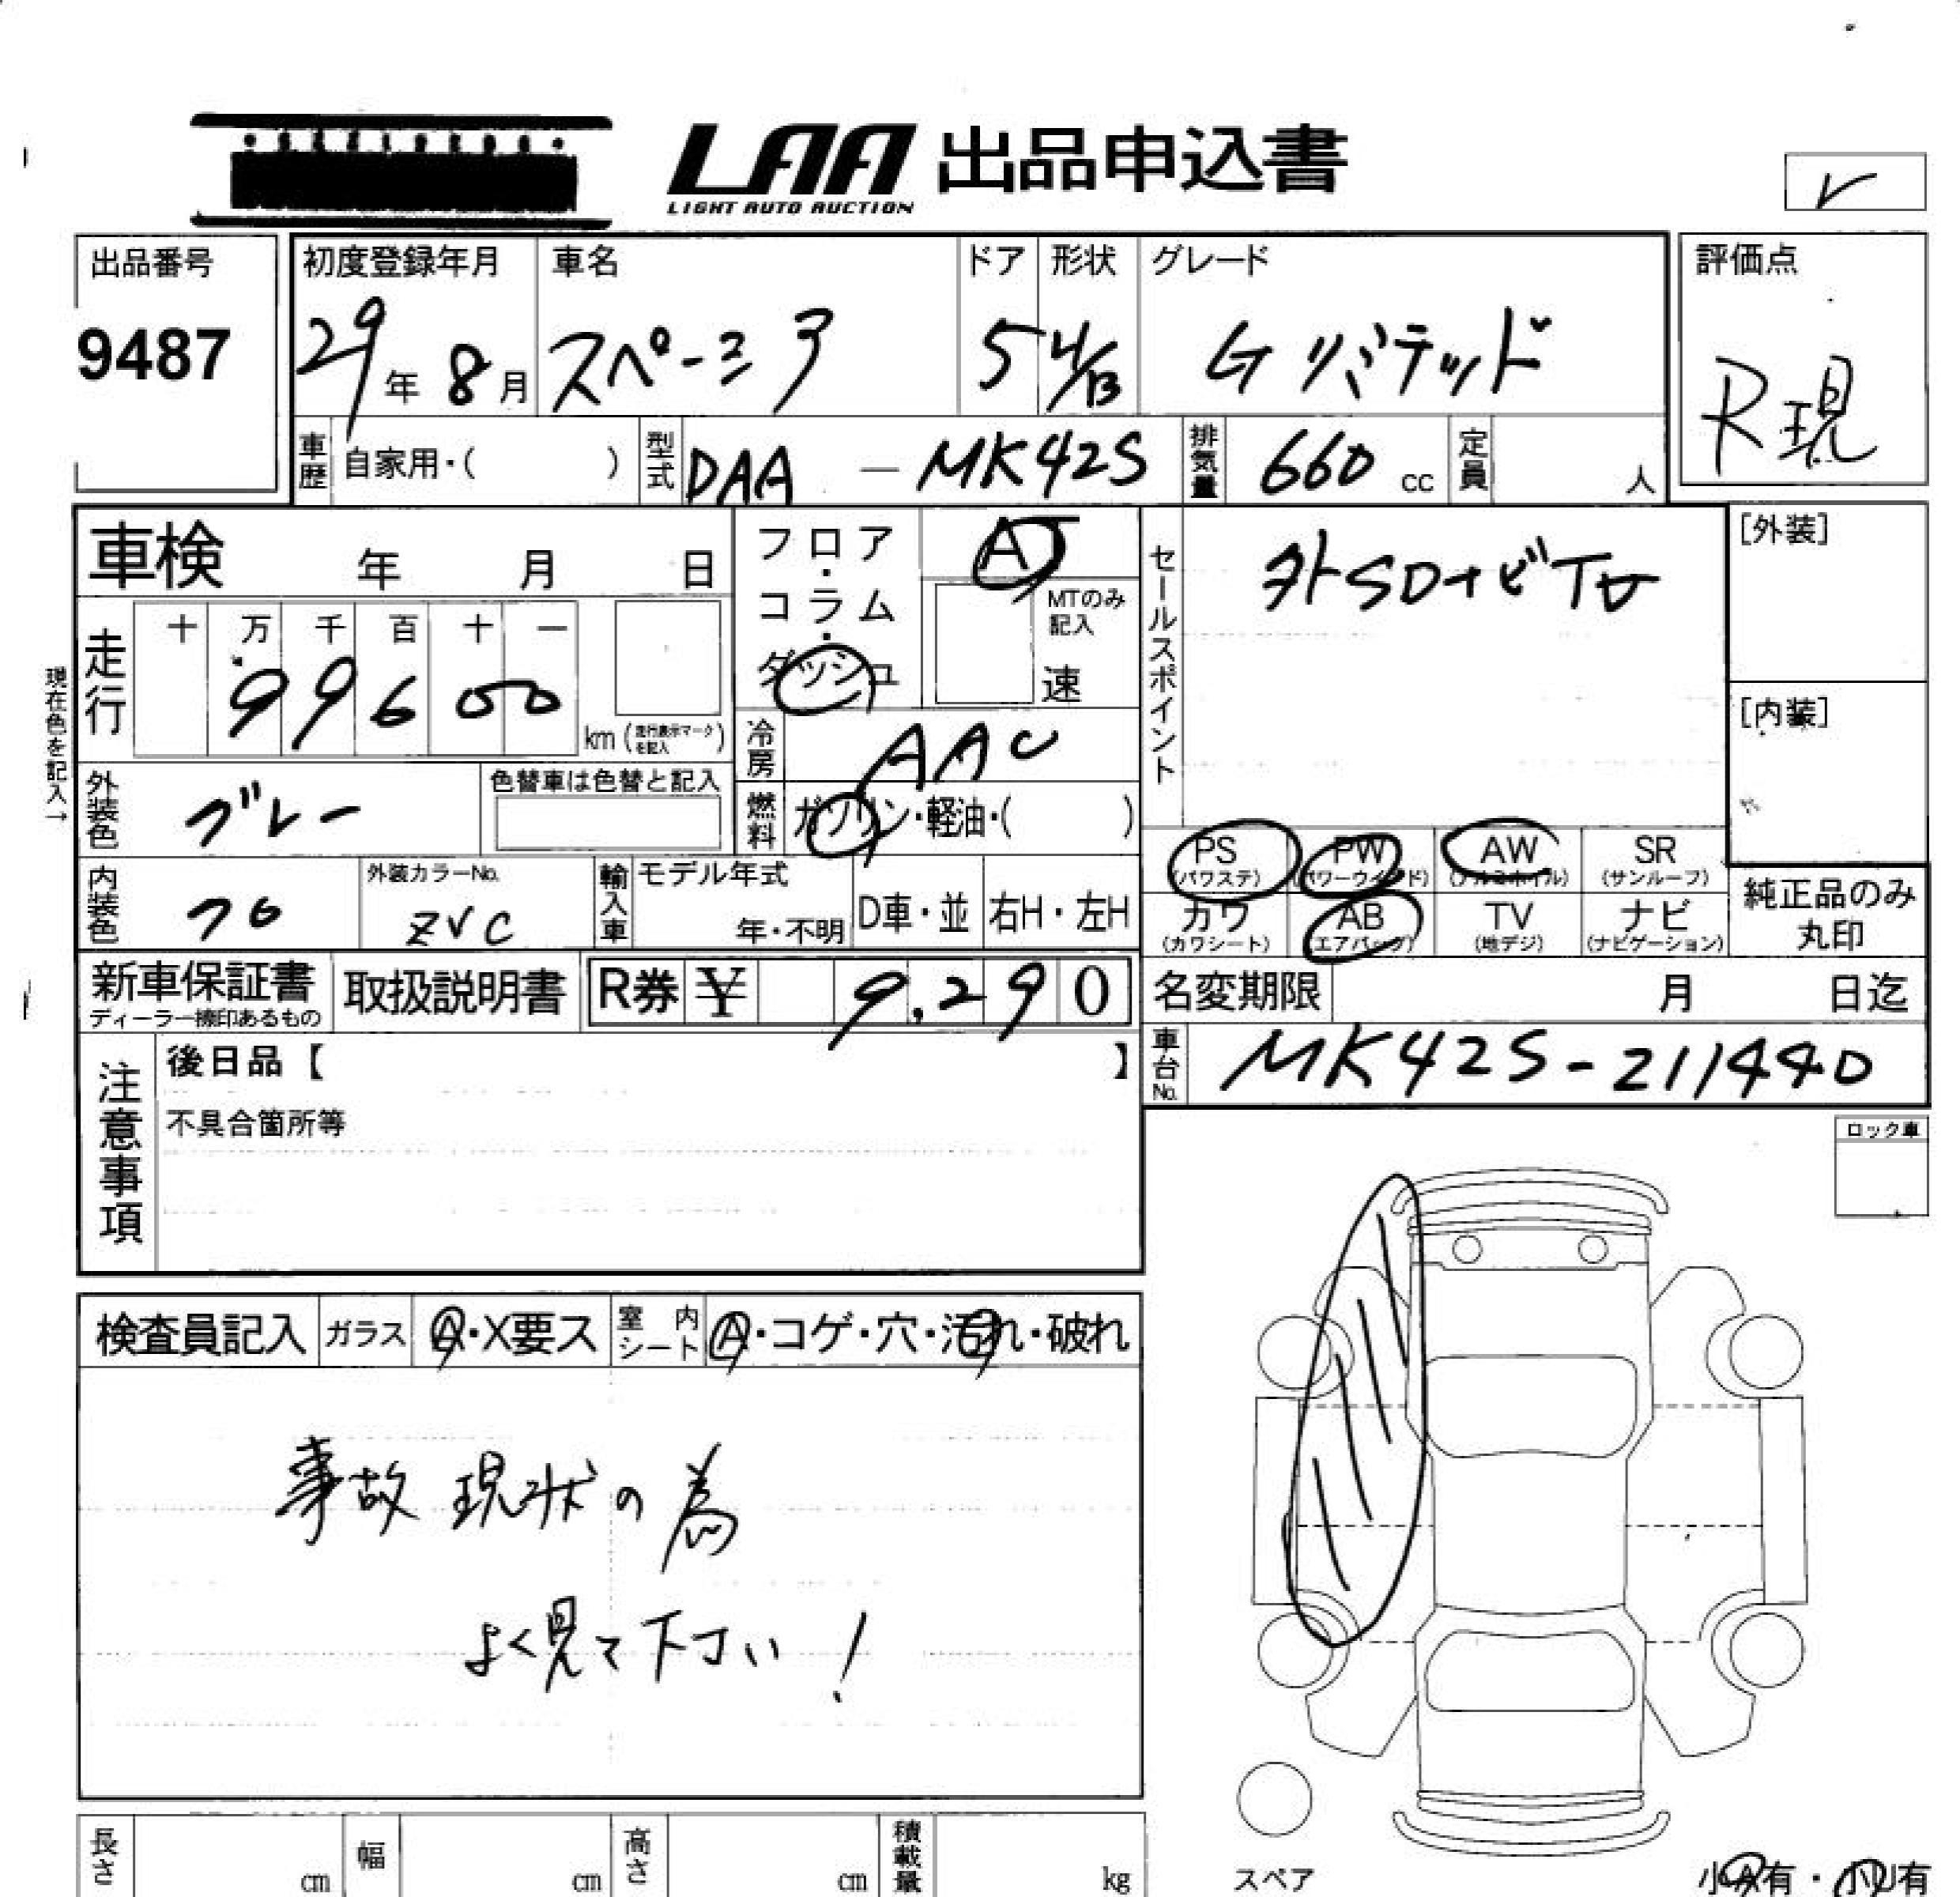 LAA 出品申込書
LIGHT AUTO AUCTION
レ
出品番号
9487
初度登録年月 車名 ドア 形状 グレード
29年 8月 スペーシア 5 H/B Gリミテッド
評価点
R現
車歴 自家用・( ) 型式 DAA - MK42S 排気量 660 cc 定員 人
車検 年 月 日
フロア・コラム・ダッシュ
AT
MTのみ記入
速
セールスポイント
外SDナビTV
[外装]
[内装]
現在色を記入→
走行 十 万 千 百 十 一
99600 km (走行表示マークを記入)
冷房 AAC
外装色 グレー 色替車は色替と記入
燃料 ガソリン・軽油・( )
内装色 クロ 外装カラーNo. ZVC
輸入車 モデル年式 年・不明 D車・並 右H・左H
PS (パワステ) PW (パワーウインド) AW (アルミホイル) SR (サンルーフ)
カワ (カワシート) AB (エアバッグ) TV (地デジ) ナビ (ナビゲーション)
純正品のみ丸印
新車保証書 取扱説明書 R券 ¥ 9,290
ディーラー捺印あるもの
名変期限 月 日迄
車台No. MK42S-211440
注意事項
後日品【 】
不具合箇所等
ロック車
検査員記入 ガラス A・X要ス 室内シート A・コゲ・穴・汚れ・破れ
事故現状の為
よく見て下さい!
長さ cm 幅 cm 高さ cm 積載量 kg
スペア
小A有・小U有